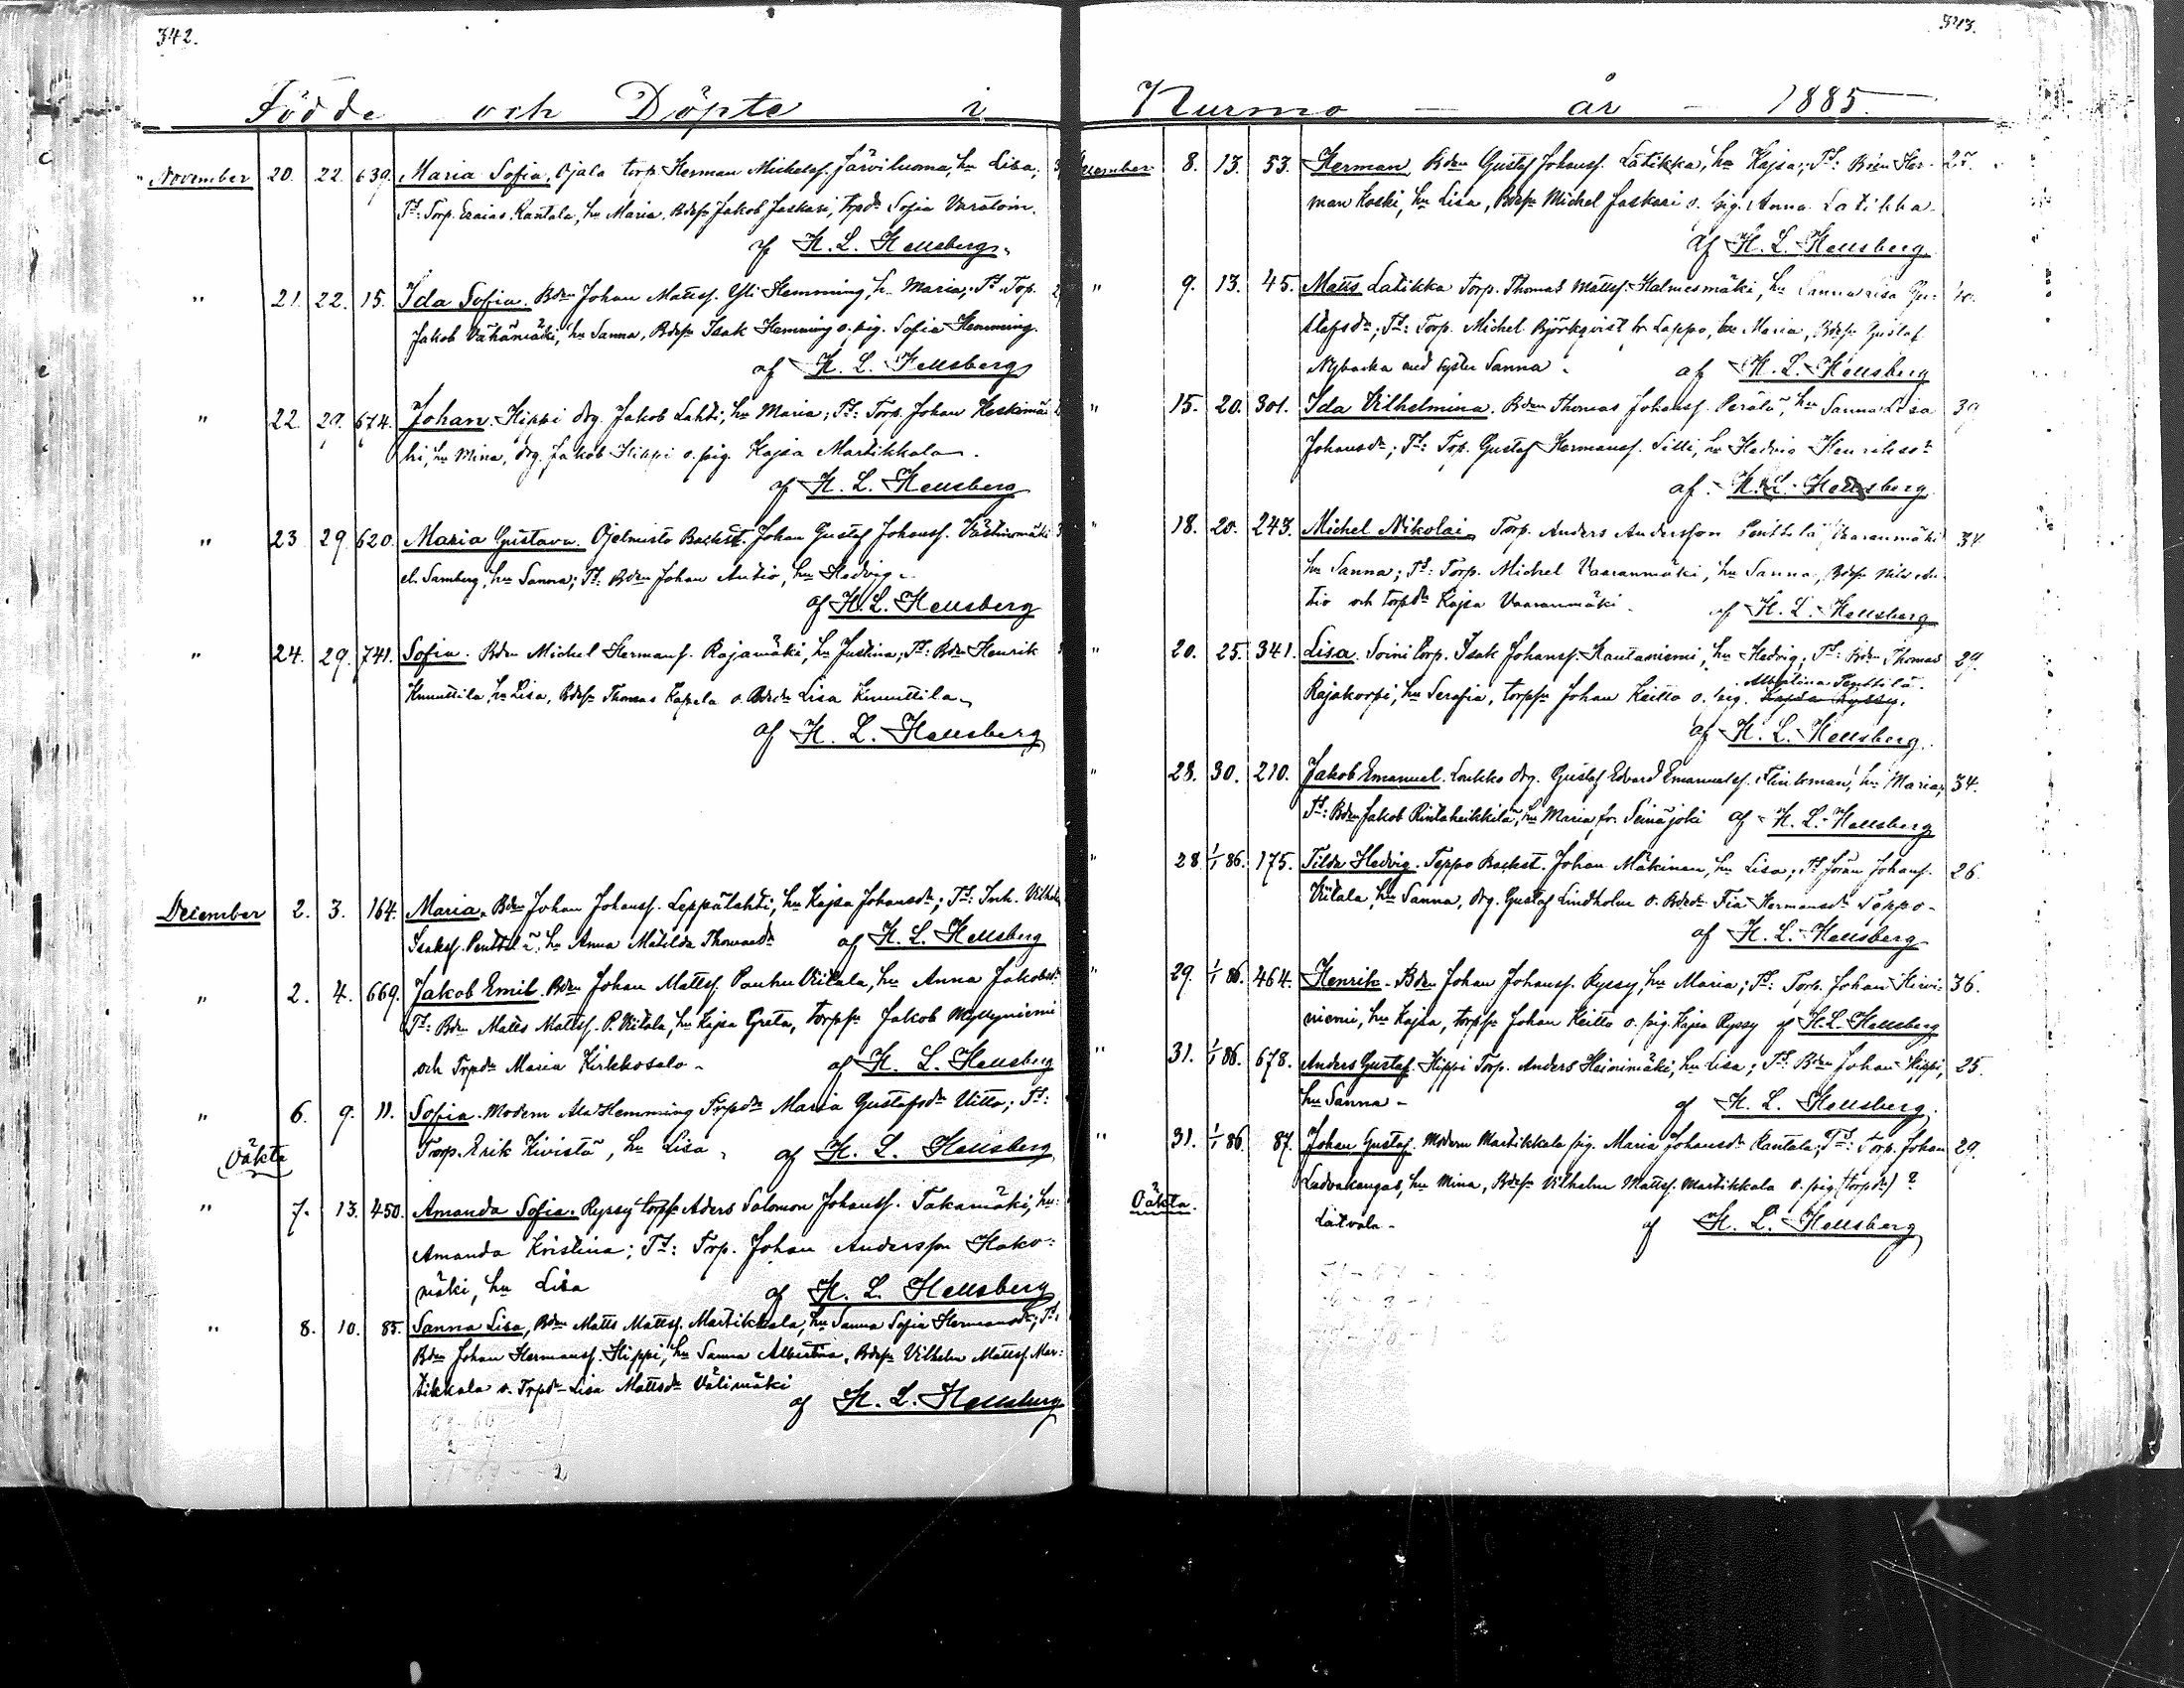 342.
Födde och Döpte i
November 20. 22. 639. Maria Sofia, Ojala torp. Herman Michelsf. Järviluoma, hu Lisa;
Tt: Torp. Esaias Rantala, hu Maria, Bdesn Jakob Jaskari, trpdr Sofia
af H. L. Hellsberg
" 21. 22. 15. Ida Sofia. Bdn Johan Mattsf. Yli Hemming, h. Maria; Tt: Torp.
Jakob Vähämäki, hu Sanna, Bdesn Isak Hemming o. pig. Sofia Hemming.
af H. L. Hellsberg
" 22. 29. 674. Johan. Hippi drg. Jakob Lahti, hu Maria; Tt: Torp. Johan Koskimä
ki, hu Mina, drg. Jakob Hippi o. pig. Kajsa Martikkala.
af H. L. Hellsberg
" 23 29 620. Maria Gustava. Backst. Johan Gustaf Johansf.
el. Samberg, hu Sanna; Tt: Bdn Johan Antio, hu Hedvig.
af H. L. Hellsberg
" 24. 29. 741. Sofia. Bdn Michel Hermansf. Rajamäki, hu Justina; Tt: Bdn Henrik
Knuuttila, hu Lisa, Bdesn Thomas Kapela o. Bdedr Lisa Knuuttila
af H. L. Hellsberg
December 2. 3. 164. Maria. Bdn Johan Johansf. Leppälahti, hu Kajsa Johansdr; Tt: Inh. Vilhelm
Isaksf. Penttilä, hu Anna Matilda Thomasdr af H. L. Hellsberg
" 2. 4. 669. Jakob Emil. Bdn Johan Mattsf. Pouhu Viitala, hu Anna Jakobsdr
Tt: Bdn Matts Mattsf. P. Viitala, hu Kajsa Greta, torpsn Jakob Myllyniemi
och Trpdr Maria Kirkkosalo - af H. L. Hellsberg
" 6. 9. 11. Sofia. Modern Ala Hemming Trpdr Maria Gustafsdr Uitto; Tt:
Oäkta Torp. Erik Kivistö, hu Lisa. af H. L. Hellsberg
" 7. 13. 450. Amanda Sofia. Ryssy torpsn Aders Salomon Johansf. Takamäki, hu:
Amanda Kristina; Tt: Trp. Johan Andersson Hako-
mäki, hu Lisa af H. L. Hellsberg
" 8. 10. 85. Sanna Lisa, Bdn Matts Mattsf. Martikkala, hu Sanna Sofia Hermansdr; Tt:
Bdn Johan Hermansf. Hippi, hu Sanna Albertina, Bdesn Vilhelm Mattsf. Mar-
tikkala o. Trpdr Lisa Mattsdr Välimäki
af H. L. Hellsberg
343.
Nurmo — år — 1885.
December 8. 13. 53. Herman, Bdn Gustaf Johansf. Latikka, hu Kajsa; Tt: Bdn Her- 25.
man Koski, hu Lisa, Bdesn Michel Jaskari o. pig. Anna Latikka.
af H. L. Hellsberg
" 9. 13. 45. Matts Latikka Torp. Thomas Mattsf. Halmesmäki, hu Sanna Lisa Gu- 40.
stafsdr; Tt: Torp. Michel Björkqvist fr. Lappo, hu Maria, Bdesn Gustaf
Nybacka med syster Sanna. af H. L. Hellsberg
" 15. 20. 301. Ida Vilhelmina. Bdn Thomas Johansf. Perälä, hu Sanna Lisa 39
Johansdr; Tt: Torp. Gustaf Hermansf. Silli, hu Hedvig Henriksdr
af H. L. Hellsberg
" 18. 20. 243. Michel Nikolai. Torp. Anders Andersson Penttilä, Vaaranmäki 34
hu Sanna; Tt: Torp. Michel Vaaranmäki, hu Sanna, Bdesn Nils An-
tio och torpdr Kajsa Vaaranmäki. af H. L. Hellsberg
" 20. 25. 341. Lisa. Soini torp. Isak Johansf. Rautaniemi, hu Hedvig; Tt: Bdn Thomas 29.
Albertina Penttilä.
Rajakorpi, hu Serafia, torpsn Johan Keitto o. pig. Kajsa Ryssy.
af H. L. Hellsberg
" 28. 30. 210. Jakob Emanuel. Loukko drg. Gustaf Edvard Emanuelsf. Flinkman, hu Maria; 34.
Tt: Bdn Jakob Rintaheikkilä, hu Maria, fr. Seinäjoki af H. L. Hellsberg
" 28 1/1 86. 175. Tilda Hedvig. Teppo Backst. Johan Mäkinen, hu Lisa; Tt: Johan Johansf. 26.
Viitala, hu Sanna, drg. Gustaf Lindholm o. Bdedr Fia Hermansdr Teppo -
af H. L. Hellsberg
" 29. 1/1 86. 464. Henrik. Bdn Johan Johansf. Ryssy, hu Maria; Tt: Torp. Johan Hirvi- 36.
niemi, hu Kajsa, torpsn Johan Keitto o. pig. Kajsa Ryssy af H. L. Hellsberg
" 31. 1/1 86. 678. Anders Gustaf. Hippi Torp. Anders Heinimäki, hu Lisa; Tt: Bdn Johan Hippi, 25.
hu Sanna - af H. L. Hellsberg
" 31. 1/1 86 87. Johan Gustaf. Modern Martikkala pig. Maria Johansdr Rantala; Tt: Torp. Johan 29.
Ladvakangas, hu Mina, Bdesn Vilhelm Mattsf. Martikkala o. pig. (torpdr) ?
Oäkta. Latvala - af H. L. Hellsberg